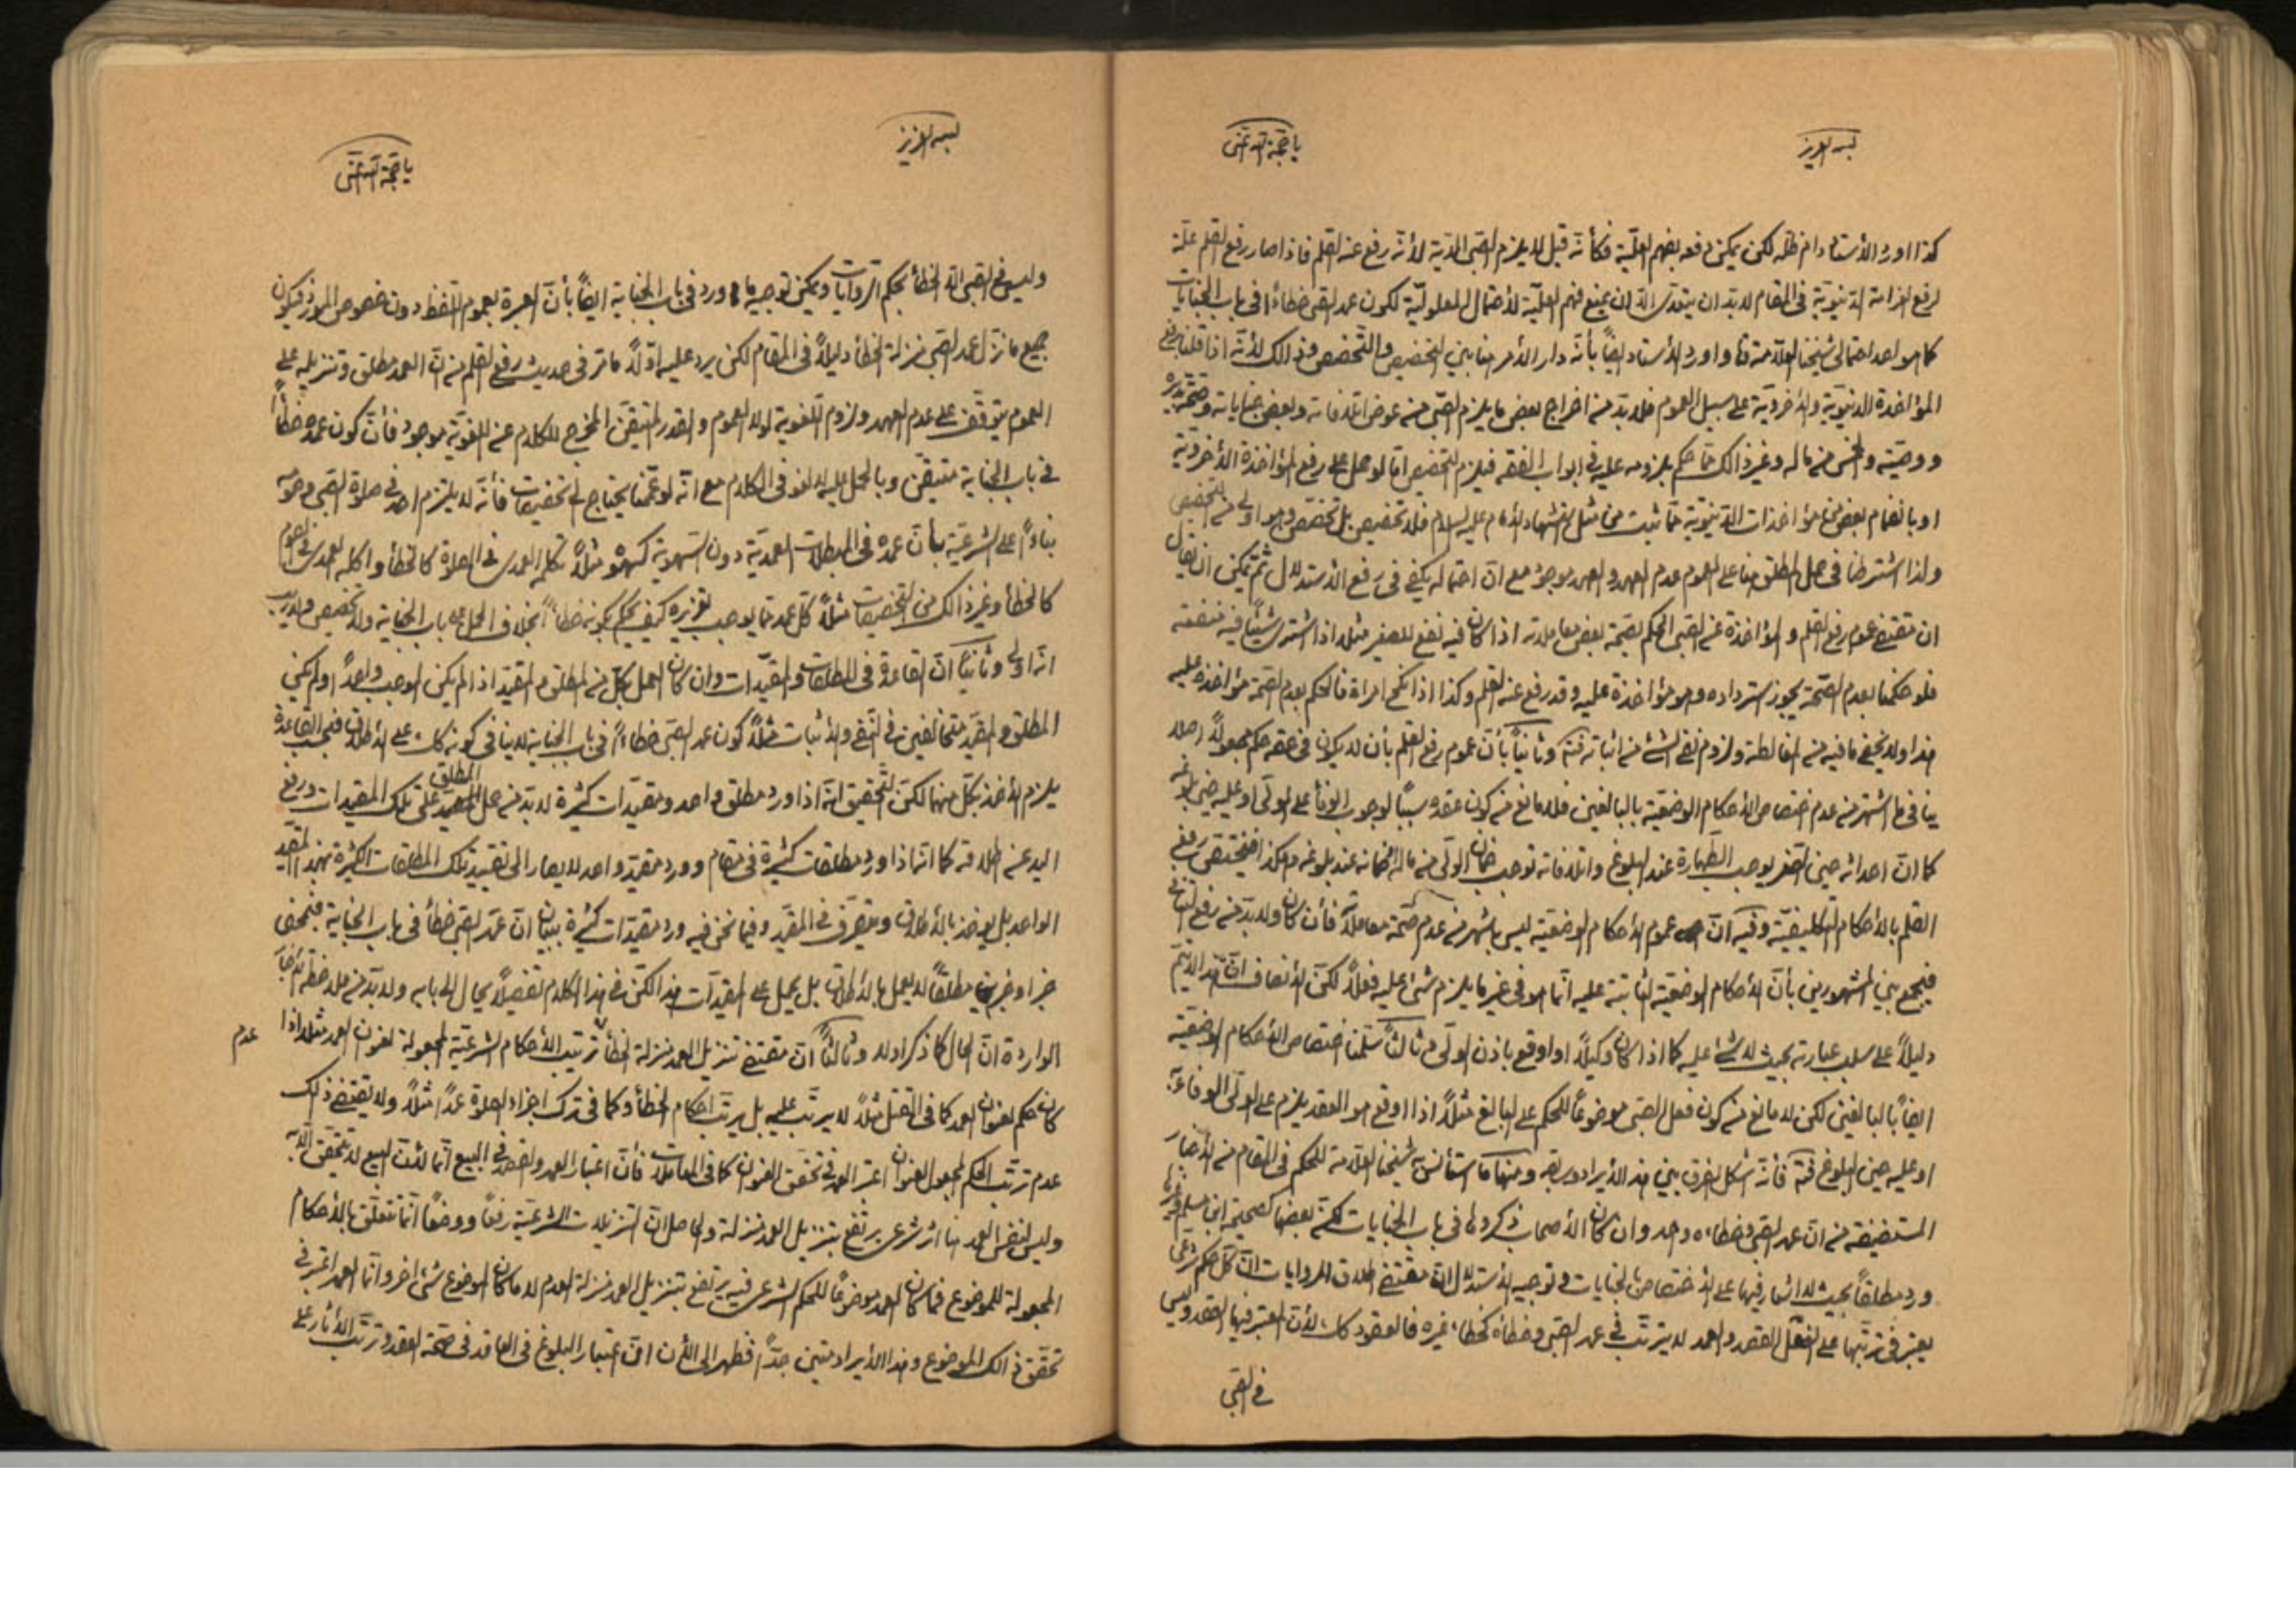 بسمه العزیز
یا حجة الله اغثنی
كذا اورد الأستاد دام ظله لكن يمكن دفعه بفهم العلّية فكأنّه قيل لا يلزم الصبى الدّية لأنّه رفع عنه القلم فاذا صار رفع القلم علّة
لرفع الغرامة الدّنيويّة فى المقام لا بدّ ان يتعدّى الّا ان يمنع فهم العلّيّة لأحتمال المعلوليّة لكون عمد الصبى خطاءً فى باب الجنايات
كما هو احد احتمالى شيخنا العلّامة و اورد الأستاد ايضاً بأنّه دار الأمر هنا بين التخصيص و التّخصص و ذالك لأنّه اذا قلنا برفع
المؤاخذة الدنيويّة و الأخرويّة على سبيل العموم فلا بدّ من اخراج بعض ما يلزم الصبى من عوض اتلافاته و بعض جناياته و صحّة تدبيره
و وصيّته و الخمس من ماله و غير ذالك ممّا حكم بلزومه عليه فى ابواب الفقه فيلزم التخصيص امّا لو حمل على رفع المؤاخذة الأخرويّة
او بانضمام بعض من مؤاخذات الدّنيويّة ممّا ثبت من مثل استشهاد الأمام عليه السلام فلا تخصيص بل تخصّص و هو اولى من التخصيص
و لذا اشترطنا فى حمل المطلق هنا على العموم عدم العهد و العهد موجود مع انّ احتماله يكفى فى رفع الأستدلال ثمّ يمكن ان يقال
ان مقتضى عموم رفع القلم و المؤاخذة عن الصبى الحكم بصحّة بعض معاملاته اذا كان فيه نفع للصغير مثلا اذا اشترى شيئاً فيه منفعته
فلو حكمنا بعدم الصّحة يجوز استرداده و هو مؤاخذة عليه و قد رفع عنه القلم و كذا اذا نكح امراة فالحكم بعدم الصّحة مؤاخذة عليه
هذا و لا يخفى ما فيه من المغالطة و لزوم نفى الشئ من اثباته فتمّ و ثانياً بأنّ عموم رفع القلم بأن لا يكون فى حقه حكم مجعولاً اصلا
ينافى ما اشتهر من عدم اختصاص الأحكام الوضعيّة بالبالغين فلا مانع من كون عقده سبباً لوجوب الوفأ على الولىّ او عليه حين بلوغه
كما انّ احداثه حين الصغر يوجب الطّهارة عند البلوغ و اتلافاته توجب ضمان الولىّ من ماله او ضمانه عند بلوغه و هكذا فيختصّ رفع
القلم بالأحكام التّكليفيّة و فيه انّ عموم الأحكام الوضعيّة ليس باشهر من عدم صّحة معاملاته فأن كان و لا بدّ من رفع التّنافى
فيجمع بين المشهورين بأنّ الأحكام الوضعيّة الثابتة عليه انّما هو فى غير ما يلزم شئ عليه فعلاً لكنّ الأنصاف انّ هذا لا يتمّ
دليلاً على سلب عبارته بحيث لا شئ عليه كما اذا كان وكيلاً او اوقع باذن الولىّ و ثالثاً سلّمنا اختصاص الأحكام الوضعيّة
ايضاً بالبالغين لكن لا مانع من كون فعل الصبى موضوعاً للحكم على البالغ مثلاً اذا اوقع هو العقد يلزم على الولىّ الوفاء به
او عليه حين البلوغ فتمّ فأنّه اشكل الفرق بين هذا الأيراد و سابقه و منها ما استأنس به شيخنا العلّامة للحكم فى المقام من الأخبار
المستفيضة من انّ عمد الصبى و خطاءه واحد و ان كان الأصحاب ذكروها فى باب الجنايات لكنّ بعضها كصحيحة ابن مسلم و غيرها
ورد مطلقاً بحيث لا اشعار فيها على الأختصاص بالجنايات و توجيه الأستدلال انّ مقتضى اطلاق الروايات انّ كلّ حكم شرعىّ
يعتبر فى ترتّبها على الفعل القصد و العمد لا يترتّب فى عمد الصبى و خطاه كخطاء غيره فالعقود كك لأنّ المعتبر فيها القصد و ليس
فى الصّبى
بسمه العزیز
یا حجة الله اغثنی
و ليس فى الصبى الّا الخطأ بحكم الرّوايات و يمكن توجيه ما ورد فى باب الجناية ايضاً بأنّ العبرة بعموم اللّفظ دون خصوص المورد فيكون
جميع ما نزّل عمد الصبى منزلة الخطأ دليلاً فى المقام لكن يرد عليه اوّلاً ما مرّ فى حديث رفع القلم من انّ العمد مطلق و تنزيله على
العموم يتوقّف على عدم العهد و لزوم اللّغوية لولا العموم و القدر المتيقّن المخرج للكلام عن اللغويّة موجود فأنّ كون عمده خطأً
فى باب الجناية متيقّن و بالحمل عليه لا لغو فى الكلام مع انّه لو عمّمنا يحتاج الى تخصيصات فأنّه لا يلتزم احد فى صلوة الصّبى و صومه
بناءً على الشرعيّة بأنّ عمده فى المبطلات العمديّة دون السّهوية كسهوه مثلاً تكلّمه العمدى فى الصلوة كالخطأ و اكله العمدى فى الصوم
كالخطأ و غير ذالك من التّخصيصات مثلاً كلّ عمد ممّا يوجب تعزيره كيف يحكم بكونه خطأً بخلاف الحمل على باب الجناية و لا تخصيص و لا ريب
انّه اولى و ثانياً انّ القاعدة فى المطلقات و المقيّدات و ان كان العمل بكلّ من المطلق و المقيّد اذا لم يكن الموجب واحداً او لم يكن
المطلق و المقيّد متخالفين فى النّفى و الأثبات مثلاً كون عمد الصبّى خطاءً فى باب الجناية لا ينافى كونه كك على الأطلاق فبحسب القاعدة
يلزم الأخذ بكلّ منهما لكنّ التّحقيق انّه اذا ورد مطلق واحد و مقيّدات كثيرة لا بدّ من حمل المطلق على تلك المقيدات و رفع
اليد عن اطلاقه كما انّه اذا ورد مطلقات كثيرة فى مقام و ورد مقيّد واحد لا يصار الى تقييد تلك المطلقات الكثيرة بهذا المقيّد
الواحد بل يؤخذ بالأطلاق و يتصرّف فى المقيّد و فيما نحن فيه ورد مقيّدات كثيرة ببيان انّ عمد الصبى خطأ فى باب الجناية فبمحض
خبر او خبرين مطلقاً لا يعمل بالأطلاق بل يحمل على المقيدّات هذا لكنّ فى هذا الكلام تفصيلاً يحال الى بابه و لا بدّ من ملاحظة الأخبار
الواردة انّ الحال كما ذكر او لا و ثالثاً انّ مقتضى تنزيل العمد منزلة الخطأ عدم ترتيب الأحكام الشرعيّة المجعولة لعنوان العمد مثلا اذا
كان حكم لعنوان العمد كما فى القتل مثلاً لا يرتّب عليه بل يرتّب احكام الخطأ و كما فى ترك اجزاء الصلوة عمداً مثلاً و لا يقتضى ذلك
عدم ترتّب الحكم المجعول لعنوان اعتبر العمد فى تحقق العنوان كما فى المعاملات فأنّ اعتبار العمد و القصد فى البيع انّما لأنّ البيع لا يتحقّق الّا به
و ليس لنفس العمد هنا اثر شرعىّ يرتفع بتنزيل العمد منزلة و الحاصل انّ التنزيلات الشرعيّة رفعاً و وضعاً انّما تتعلّق بالأحكام
المجعولة للموضوع فما كان العمد موضوعاً للحكم الشرعى فيه يرتفع بتنزيل العمد منزلة العدم لا ما كان الموضوع شئ اخر و انّما العمد اعتبر فى
تحقّق ذالك الموضوع و هذا الأيراد متين جدّاً فظهر الى الأن انّ اعتبار البلوغ فى العاقد فى صّحة العقد و ترتّب الأثار على